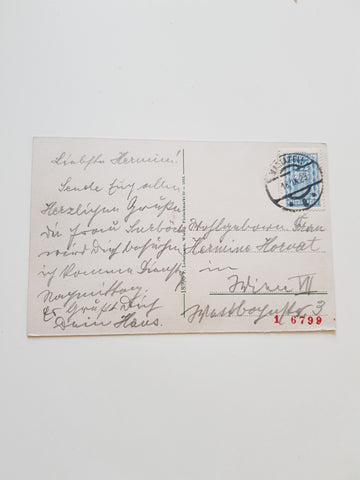 Liebste Hermine!
Sende Euch allen
Herzlichen Grüße
die Frau
wird Dich besuchen
ich komme Dienstag
Nachmittag.
Es Grüßt Dich
Dein Hans.
Wohlgeboren Frau
Hermine Horvat
in
Wien VII
3
1 6799